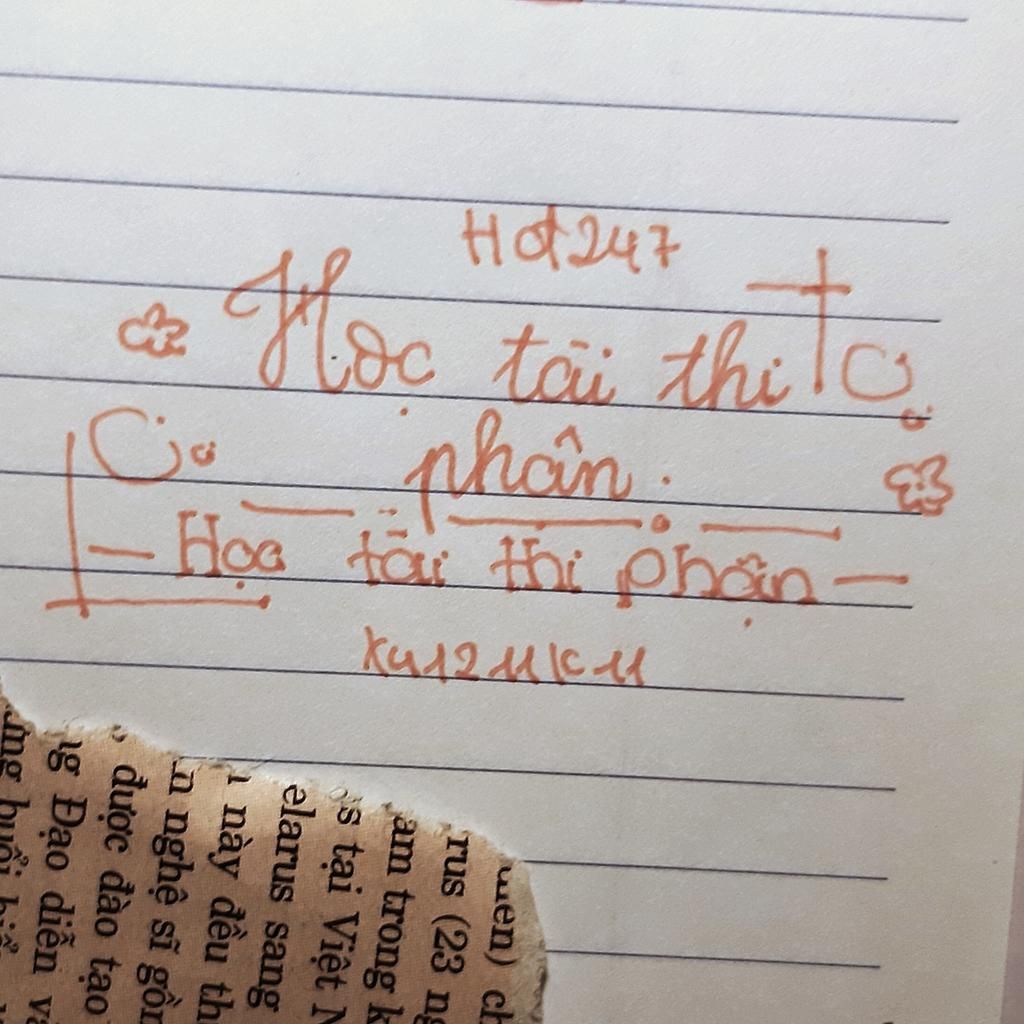 Hot247
Học tài thi
phân.
- Học tài thi phận -
K41211K11
ững buổi biể
ng Đạo diễn v
được đào tạo
n nghệ sĩ gồm
này đều th
elarus sang
s tại Việt N
am trong k
rus (23 ng
uen) ch